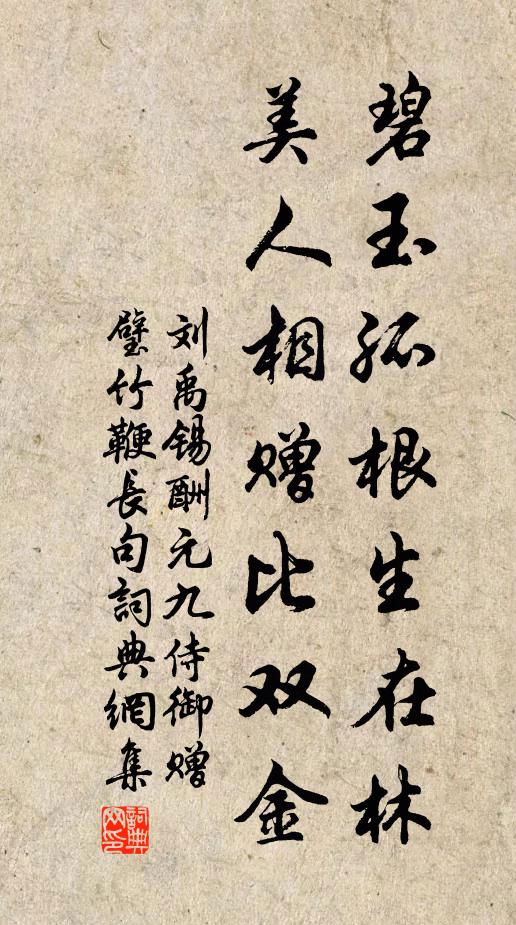 碧玉孤根生在林
美人相赠比双金
刘禹锡酬元九侍御赠
璧竹鞭长句词典網集
詞典網印